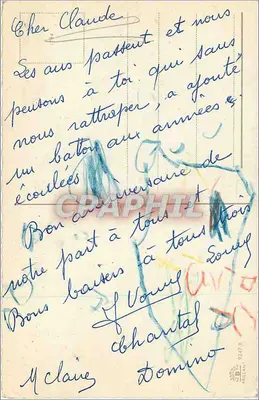 Cher Claude
Les ans passent et nous
pensons à toi qui sans
nous rattraper, a ajouté
un batton aux années
écoulées
Bon anniversaire de
notre part à tous et
Bons baisers à tous trois
CPAPHIL
Chantal
M Claire Domino